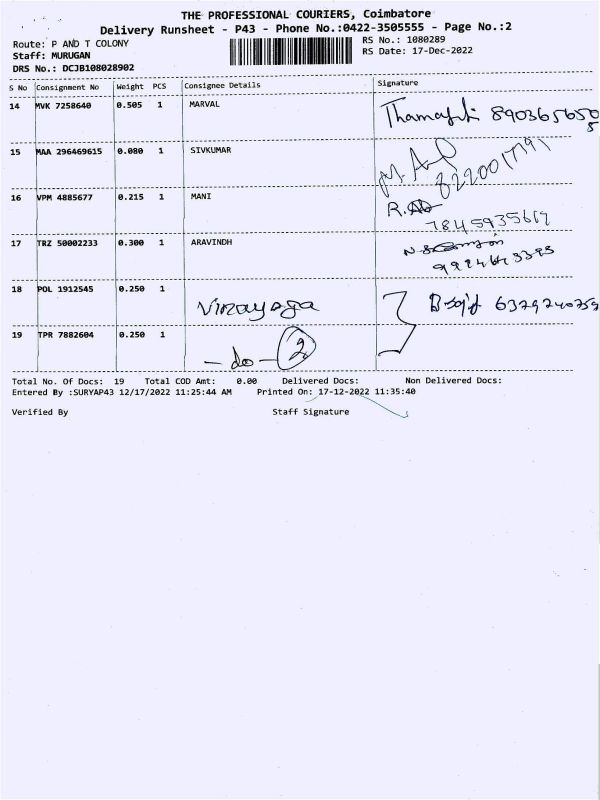 THE PROFESSIONAL COURIERS, Coimbatore
Delivery Runsheet - P43 - Phone No.:0422-3505555 - Page No.:2
Route: P AND T COLONY
Staff: MURUGAN
DRS No.: DCJB108028902
RS No.: 1080289
RS Date: 17-Dec-2022
S No Consignment No Weight PCS Consignee Details Signature
14 MVK 7258640 0.505 1 MARVAL
15 MAA 296469615 0.080 1 SIVKUMAR
16 VPM 4885677 0.215 1 MANI
7845935617
17 TRZ 50002233 0.300 1 ARAVINDH
18 POL 1912545 0.250 1 Vinayaga 6379240759
19 TPR 7882604 0.250 1 -do- 2
Total No. Of Docs: 19 Total COD Amt: 0.00 Delivered Docs: Non Delivered Docs:
Entered By :SURYAP43 12/17/2022 11:25:44 AM Printed On: 17-12-2022 11:35:40
Verified By Staff Signature